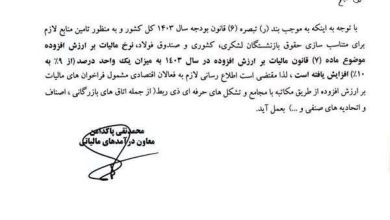 با توجه به اینکه به موجب بند (ر) تبصره (۶) قانون بودجه سال ۱۴۰۳ کل کشور و به منظور تامین منابع لازم
برای متناسب سازی حقوق بازنشستگان لشکری، کشوری و صندوق فولاد، نرخ مالیات بر ارزش افزوده
موضوع ماده (۷) قانون مالیات بر ارزش افزوده در سال ۱۴۰۳ به میزان یک واحد درصد (از ۹% به
۱۰%) افزایش یافته است ، لذا مقتضی است اطلاع رسانی لازم به فعالان اقتصادی مشمول فراخوان های مالیات
بر ارزش افزوده از طریق مکاتبه با مجامع و تشکل های حرفه ای ذی ربط( از جمله اتاق های بازرگانی ، اصناف
و اتحادیه های صنفی و ...) بعمل آید.
محمدتقی پاکدامن
معاون درآمدهای مالیاتی